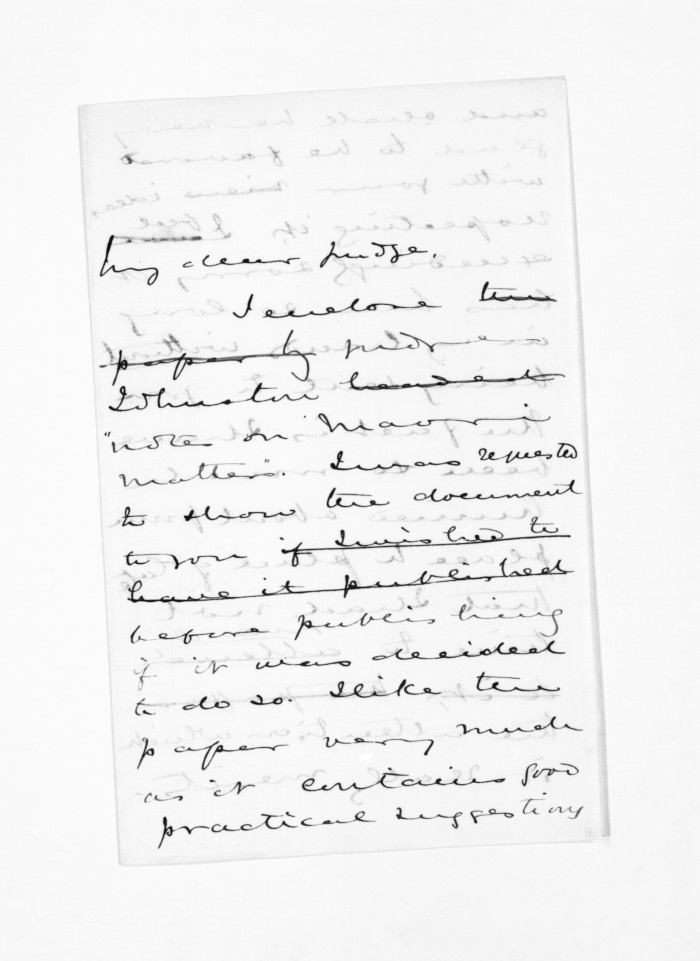 My dear Judge,
I enclose the
paper by
Johnston headed
"notes on Maori
matters". I was requested
to show the document
to you if I wished to
have it published
before publishing
if it was decided
to do so. I like the
paper very much
as it contains good
practical suggestions